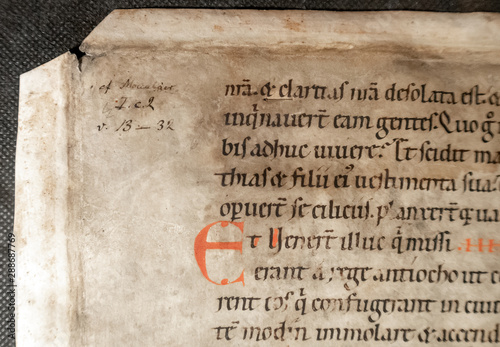 cf Maccabaeor
I. c. 2
v. 13 – 32
nr̄a. & claritas nr̄a desolata est. &
inq̇navert̄ eam gentes. Quo g̊
bis adhuc vivere? Et scidit ma
thias & filii ei᷒ vestimenta sua
operver̄t se ciliciis. & planxert̄ valde
Et venert̄ illuc q̇ missi
erant a rege antiocho ut c
rent eos q̇ confugerant in civi
tē modin immolare & accend
Adobe Stock
288887769